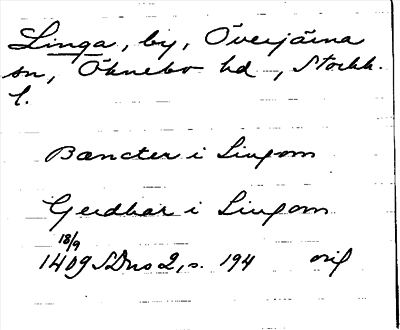 Linga, by, Överjärna
sn, Öknebo hd, Stockh.
l.
Bencter i Lingom
Gerdhar i Lingom
18/9
1409 SDns 2, s. 194 orig